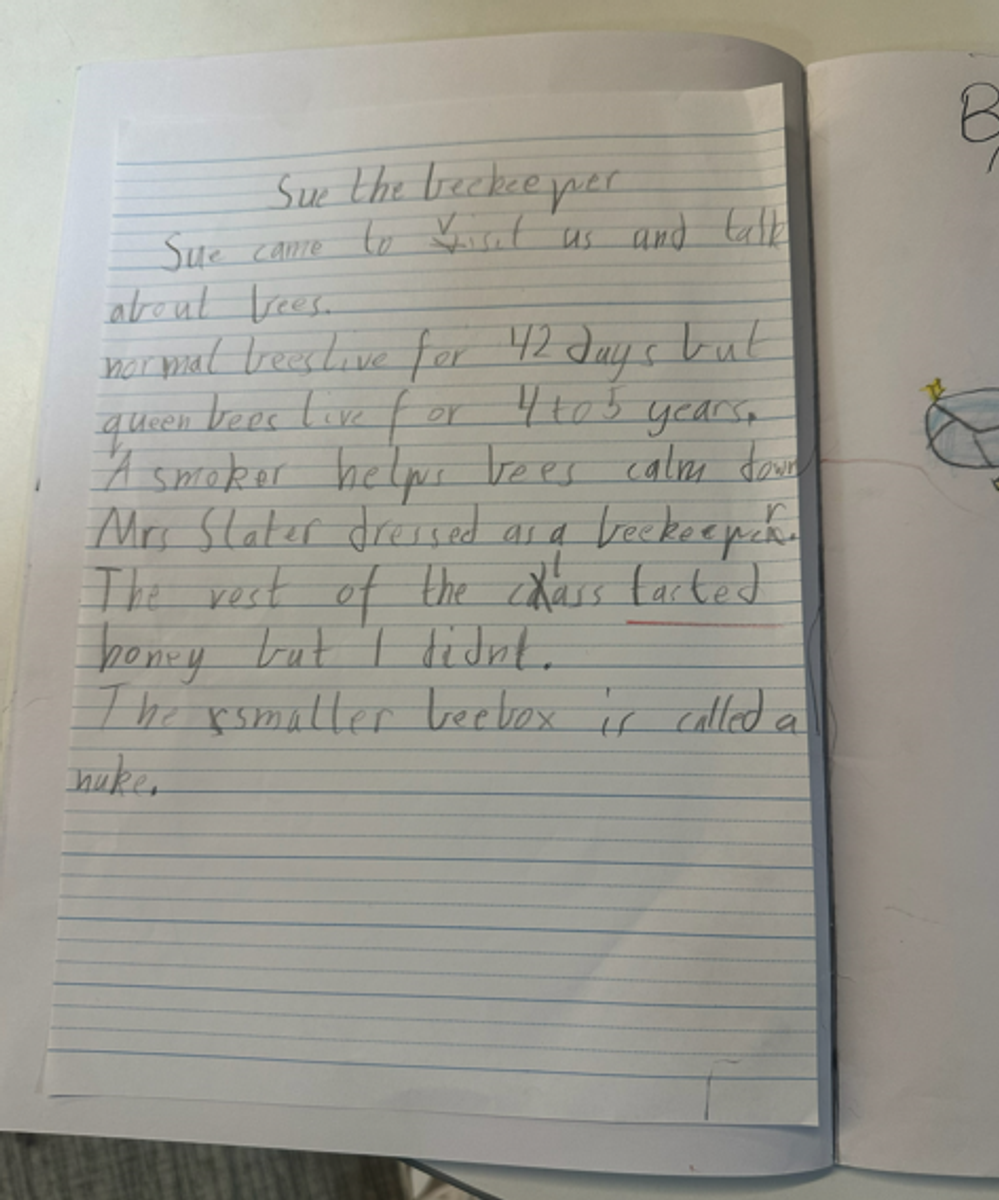 Sue the beekeeper
Sue came to visit us and talk
about bees.
normal bees live for 42 days but
queen bees live for 4 to 5 years.
A smoker helps bees calm down
Mrs Slater dressed as a beekeeper.
The rest of the class tasted
honey but I didnt.
The smaller beebox is called a
nuke.
B